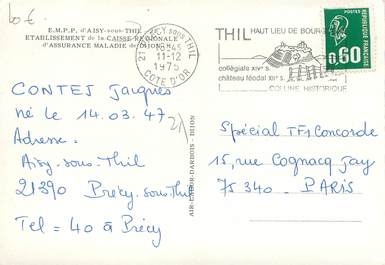 10€
E.M.P.P. d'AISY-sous-THIL
ETABLISSEMENT de la CAISSE REGIONALE
d'ASSURANCE MALADIE de DIJON
SOUS-THIL
18H45
11-12
1975
COTE D'OR
THIL HAUT LIEU DE BOURGOGNE
collégiale XIVe S
château féodal XIe S
COLLINE HISTORIQUE
POSTES
0,60
REPUBLIQUE FRANÇAISE
CONTES Jacques
né le 14.03.47
Adresse.
Aisy-sous-Thil
21390 Précy-sous-Thil
Tel = 40 à Précy
21
AIR-COLOR-DARBOIS - DIJON
Spécial TF1 Concorde
15, rue Cognacq Jay
75 340 - PARIS